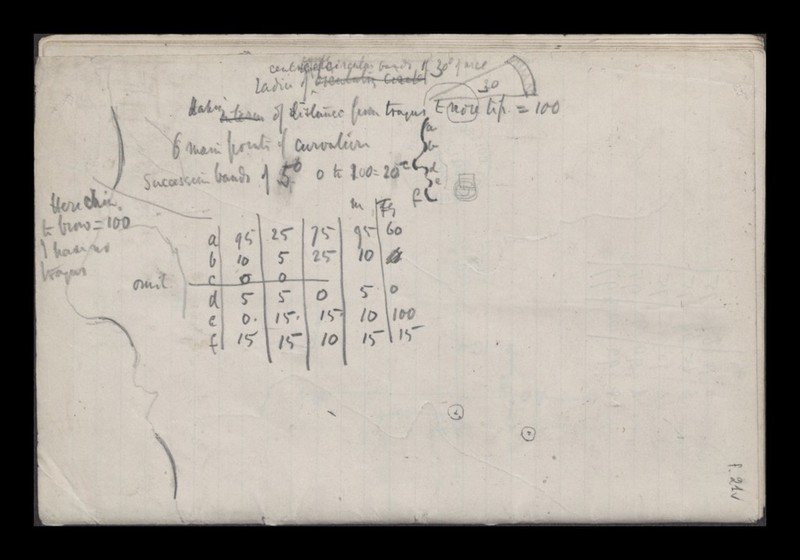 Radii of circular bands, of 30° face
30
taking distance from tragus to nose tip. = 100
6 main points of curvature
a
b
c
d
e
f
Succession bands of 5° 0 to 100 = 20
5
Here chin
to brow = 100
I have no
tragus
m
a 95 25 75 95 60
b 10 5 25 10
omit c 0 0
d 5 5 0 5 0
e 0. 15. 15. 10 100
f 15 15 10 15 15
f. 21v